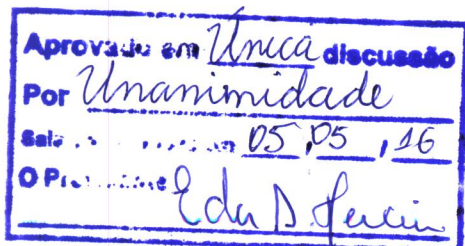 Aprovado em Única discussão
Por Unanimidade
Sala 05, 05, 16
O Presidente